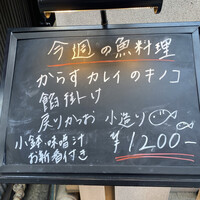 今週の魚料理
からすカレイのキノコ
餡掛け
戻りがつお 小造り
小鉢・味噌汁
お新香付き
¥1200-